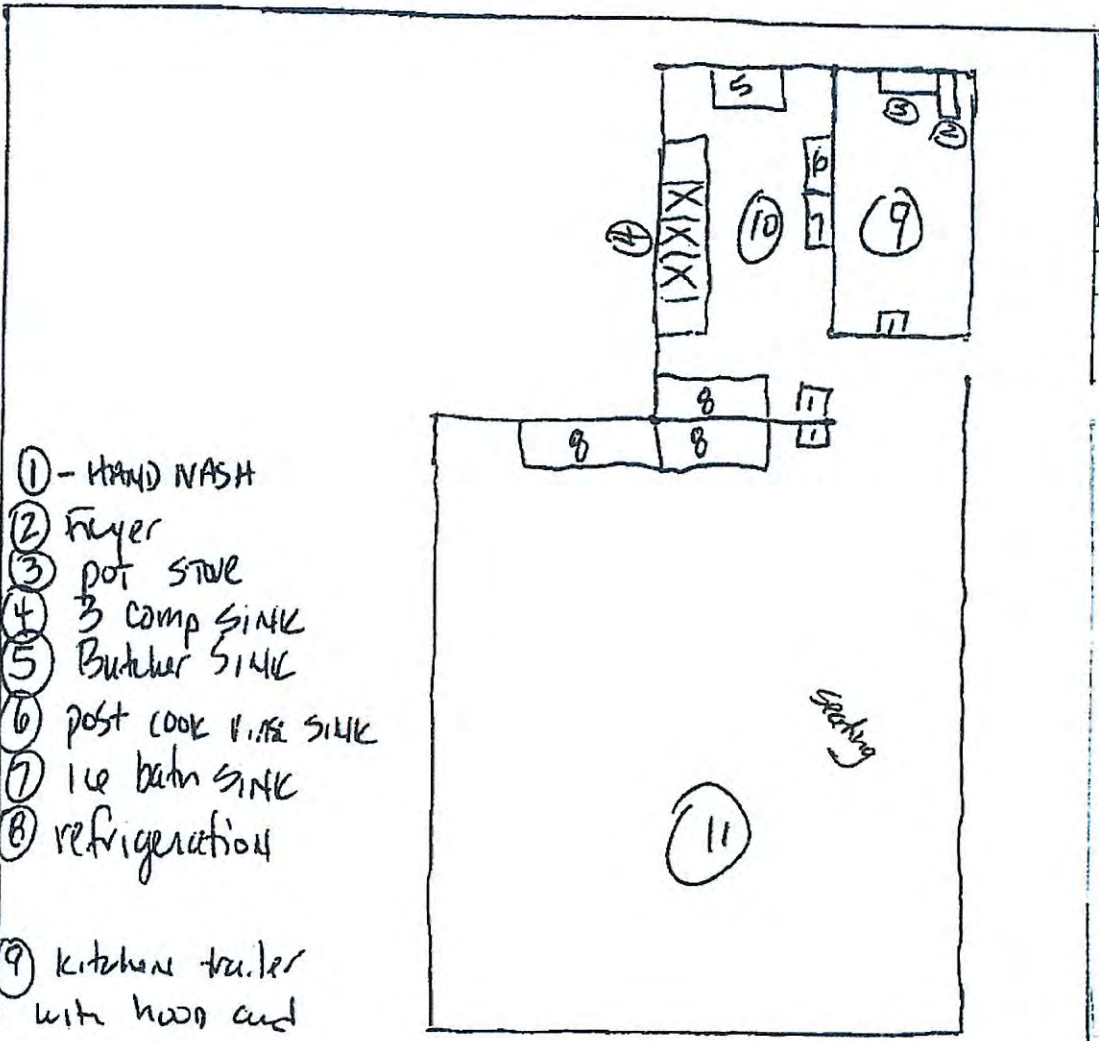 5
③
②
6
④
X X X
⑩
7
⑨
1
8
1
8
8
1
① - HAND WASH
② Fryer
③ pot stove
④ 3 comp sink
⑤ Butcher sink
⑥ post cook rinse sink
⑦ Ice bath sink
⑧ refrigeration
seating
⑪
⑨ kitchen trailer
with hood and